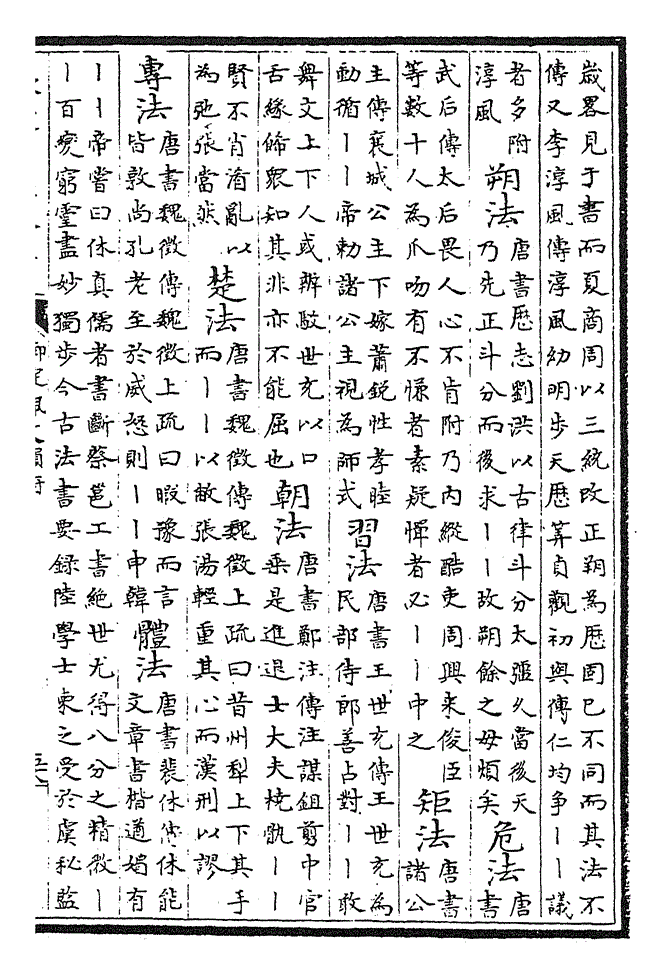 歲畧見于書而夏商周以三統改正朔為厯固已不同而其法不
傳又李淳風傳淳風幼明步天厯算貞觀初與傅仁均爭丨丨議
者多附
淳風
朔法
唐書厯志劉洪以古律斗分太彊久當後天
乃先正斗分而後求丨丨故朔餘之母煩矣
危法
唐
書
武后傳太后畏人心不肯附乃内縱酷吏周興來俊臣
等數十人為爪吻有不慊者素疑憚者必丨丨中之
矩法
唐書
諸公
主傳襄城公主下嫁蕭銳性孝睦
動循丨丨帝勅諸公主視為師式
習法
唐書王世充傳王世充為
民部侍郎善占對丨丨敢
舞文上下人或辨駁世充以口
舌緣飾衆知其非亦不能屈也
朝法
唐書鄭注傳注謀鉏翦中官
乘是進退士大夫撓骫丨丨
賢不肖淆亂以
為弛張當然
楚法
唐書魏徵傳魏徵上疏曰昔州犂上下其手
而丨丨以敝張湯輕重其心而漢刑以謬
專法
唐書魏徵傳魏徵上疏曰暇豫而言
皆敦尚孔老至於威怒則丨丨申韓
體法
唐書裴休傳休能
文章書楷遒媚有
丨丨帝嘗曰休真儒者書斷蔡邕工書絶世尤得八分之精微丨
丨百變窮靈盡妙獨步今古法書要録陸學士柬之受於虞秘監